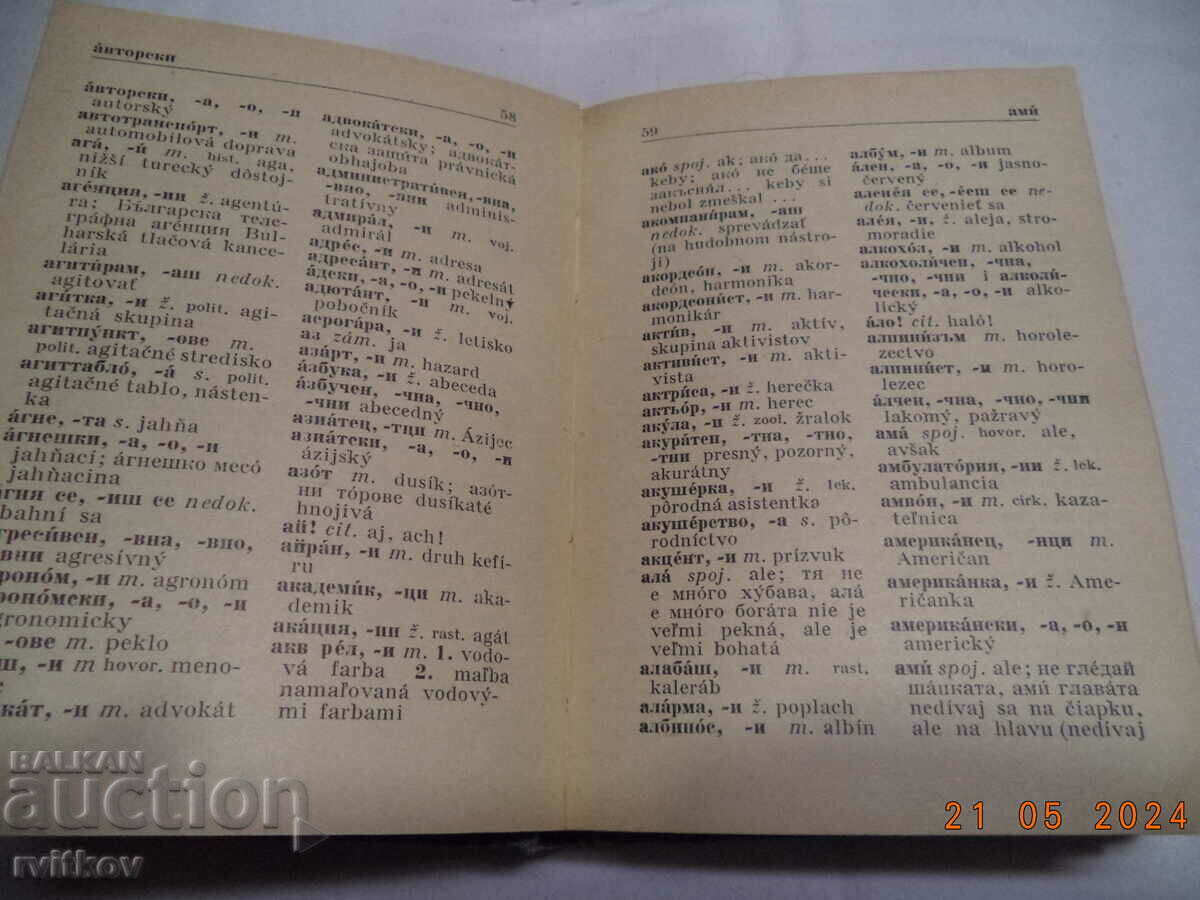 а́вторски
58
а́вторски, -а, -о, -и
autorský
автотранспо́рт, -и m.
automobilová doprava
ага́, -и́ m. hist. aga,
nižší turecký dôstoj-
ník
аге́нция, -ии ž. agentú-
ra; Бъ́лгарска теле-
гра́фна аге́нция Bul-
harská tlačová kance-
lária
агити́рам, -аш nedok.
agitovať
аги́тка, -и ž. polit. agi-
tačná skupina
агитпу́нкт, -ове m.
polit. agitačné stredisko
агиттабло́, -а́ s. polit.
agitačné tablo, násten-
ka
а́гне, -та s. jahňa
а́гнешки, -а, -о, -и
jahňací; а́гнешко месо́
jahňacina
агня се, -иш се nedok.
bahní sa
греси́вен, -вна, -вно,
вни agresívny
роно́м, -и m. agronóm
роно́мски, -а, -о, -и
gronomicky
-ове m. peklo
ш, -и m hovor. meno-
кат, -и m. advokát
адвока́тски, -а, -о, -и
advokátsky; адвока́т-
ска защи́та právnická
obhajoba
администрати́вен, -вна,
-вно, -вни adminis-
tratívny
адмира́л, -и m. voj.
admirál
адре́с, -и m. adresa
адреса́нт, -и m. adresát
а́дски, -а, -о, -и pekelný
адюта́нт, -и m. voj.
pobočník
аерога́ра, -и ž. letisko
аз zám. ja
аза́рт, -и m. hazard
а́збука, -и ž. abeceda
а́збучен, -чна, -чно,
-чни abecedný
азиа́тец, -тци m. Ázijec
азиа́тски, -а, -о, -и
ázijský
азо́т m. dusík; азо́т-
ни то́рове dusíkaté
hnojivá
ай! cit. aj, ach!
айра́н, -и m. druh kefí-
ru
академи́к, -ци m. aka-
demik
ака́ция, -ии ž. rast. agát
акв ре́л, -и m. 1. vodo-
vá farba 2. maľba
namaľovaná vodový-
mi farbami
59
ами́
ако́ spoj. ak; ако́ да...
keby; ако́ не беше
закъсня́л... keby si
nebol zmeškal ...
акомпани́рам, -аш
nedok. sprevádzať
(na hudobnom nástro-
ji)
акордео́н, -и m. akor-
deón, harmonika
акордеони́ст, -и m. har-
monikár
акти́в, -и m. aktív,
skupina aktivistov
активи́ст, -и m. akti-
vista
актри́са, -и ž. herečka
актьо́р, -и m. herec
аку́ла, -и ž. zool. žralok
акура́тен, -тна, -тно,
-тни presný, pozorný,
akurátny
акуше́рка, -и ž. lek.
pôrodná asistentka
акуше́рство, -а s. pô-
rodníctvo
акце́нт, -и m. prízvuk
ала́ spoj. ale; тя не
е мно́го ху́бава, ала́
е мно́го бога́та nie je
veľmi pekná, ale je
veľmi bohatá
алаба́ш, -и m. rast.
kaleráb
ала́рма, -и ž. poplach
албино́с, -и m. albín
албу́м, -и m. album
а́лен, -а, -о, -и jasno-
červený
алене́я се, -е́еш се ne-
dok. červenieť sa
але́я, -и, ž. aleja, stro-
moradie
алкохо́л, -и m. alkohol
алкохоли́чен, -чна,
-чно, -чни i алколи́-
чески, -а, -о, -и alko-
lický
а́ло! cit. haló!
алпини́зъм m. horole-
zectvo
алпини́ст, -и m. horo-
lezec
а́лчен, -чна, -чно, -чни
lakomý, pažravý
ама́ spoj. hovor. ale,
avšak
амбулато́рия, -ии ž. lek.
ambulancia
амво́н, -и m. cirk. kaza-
teľnica
америка́нец, -нци m.
Američan
америка́нка, -и ž. Ame-
ričanka
америка́нски, -а, -о, -и
americký
ами́ spoj. ale; не гле́дай
ша́пката, ами́ глава́та
nedívaj sa na čiapku,
ale na hlavu (nedívaj
BALKAN
auction
rvitkov
21 05 2024